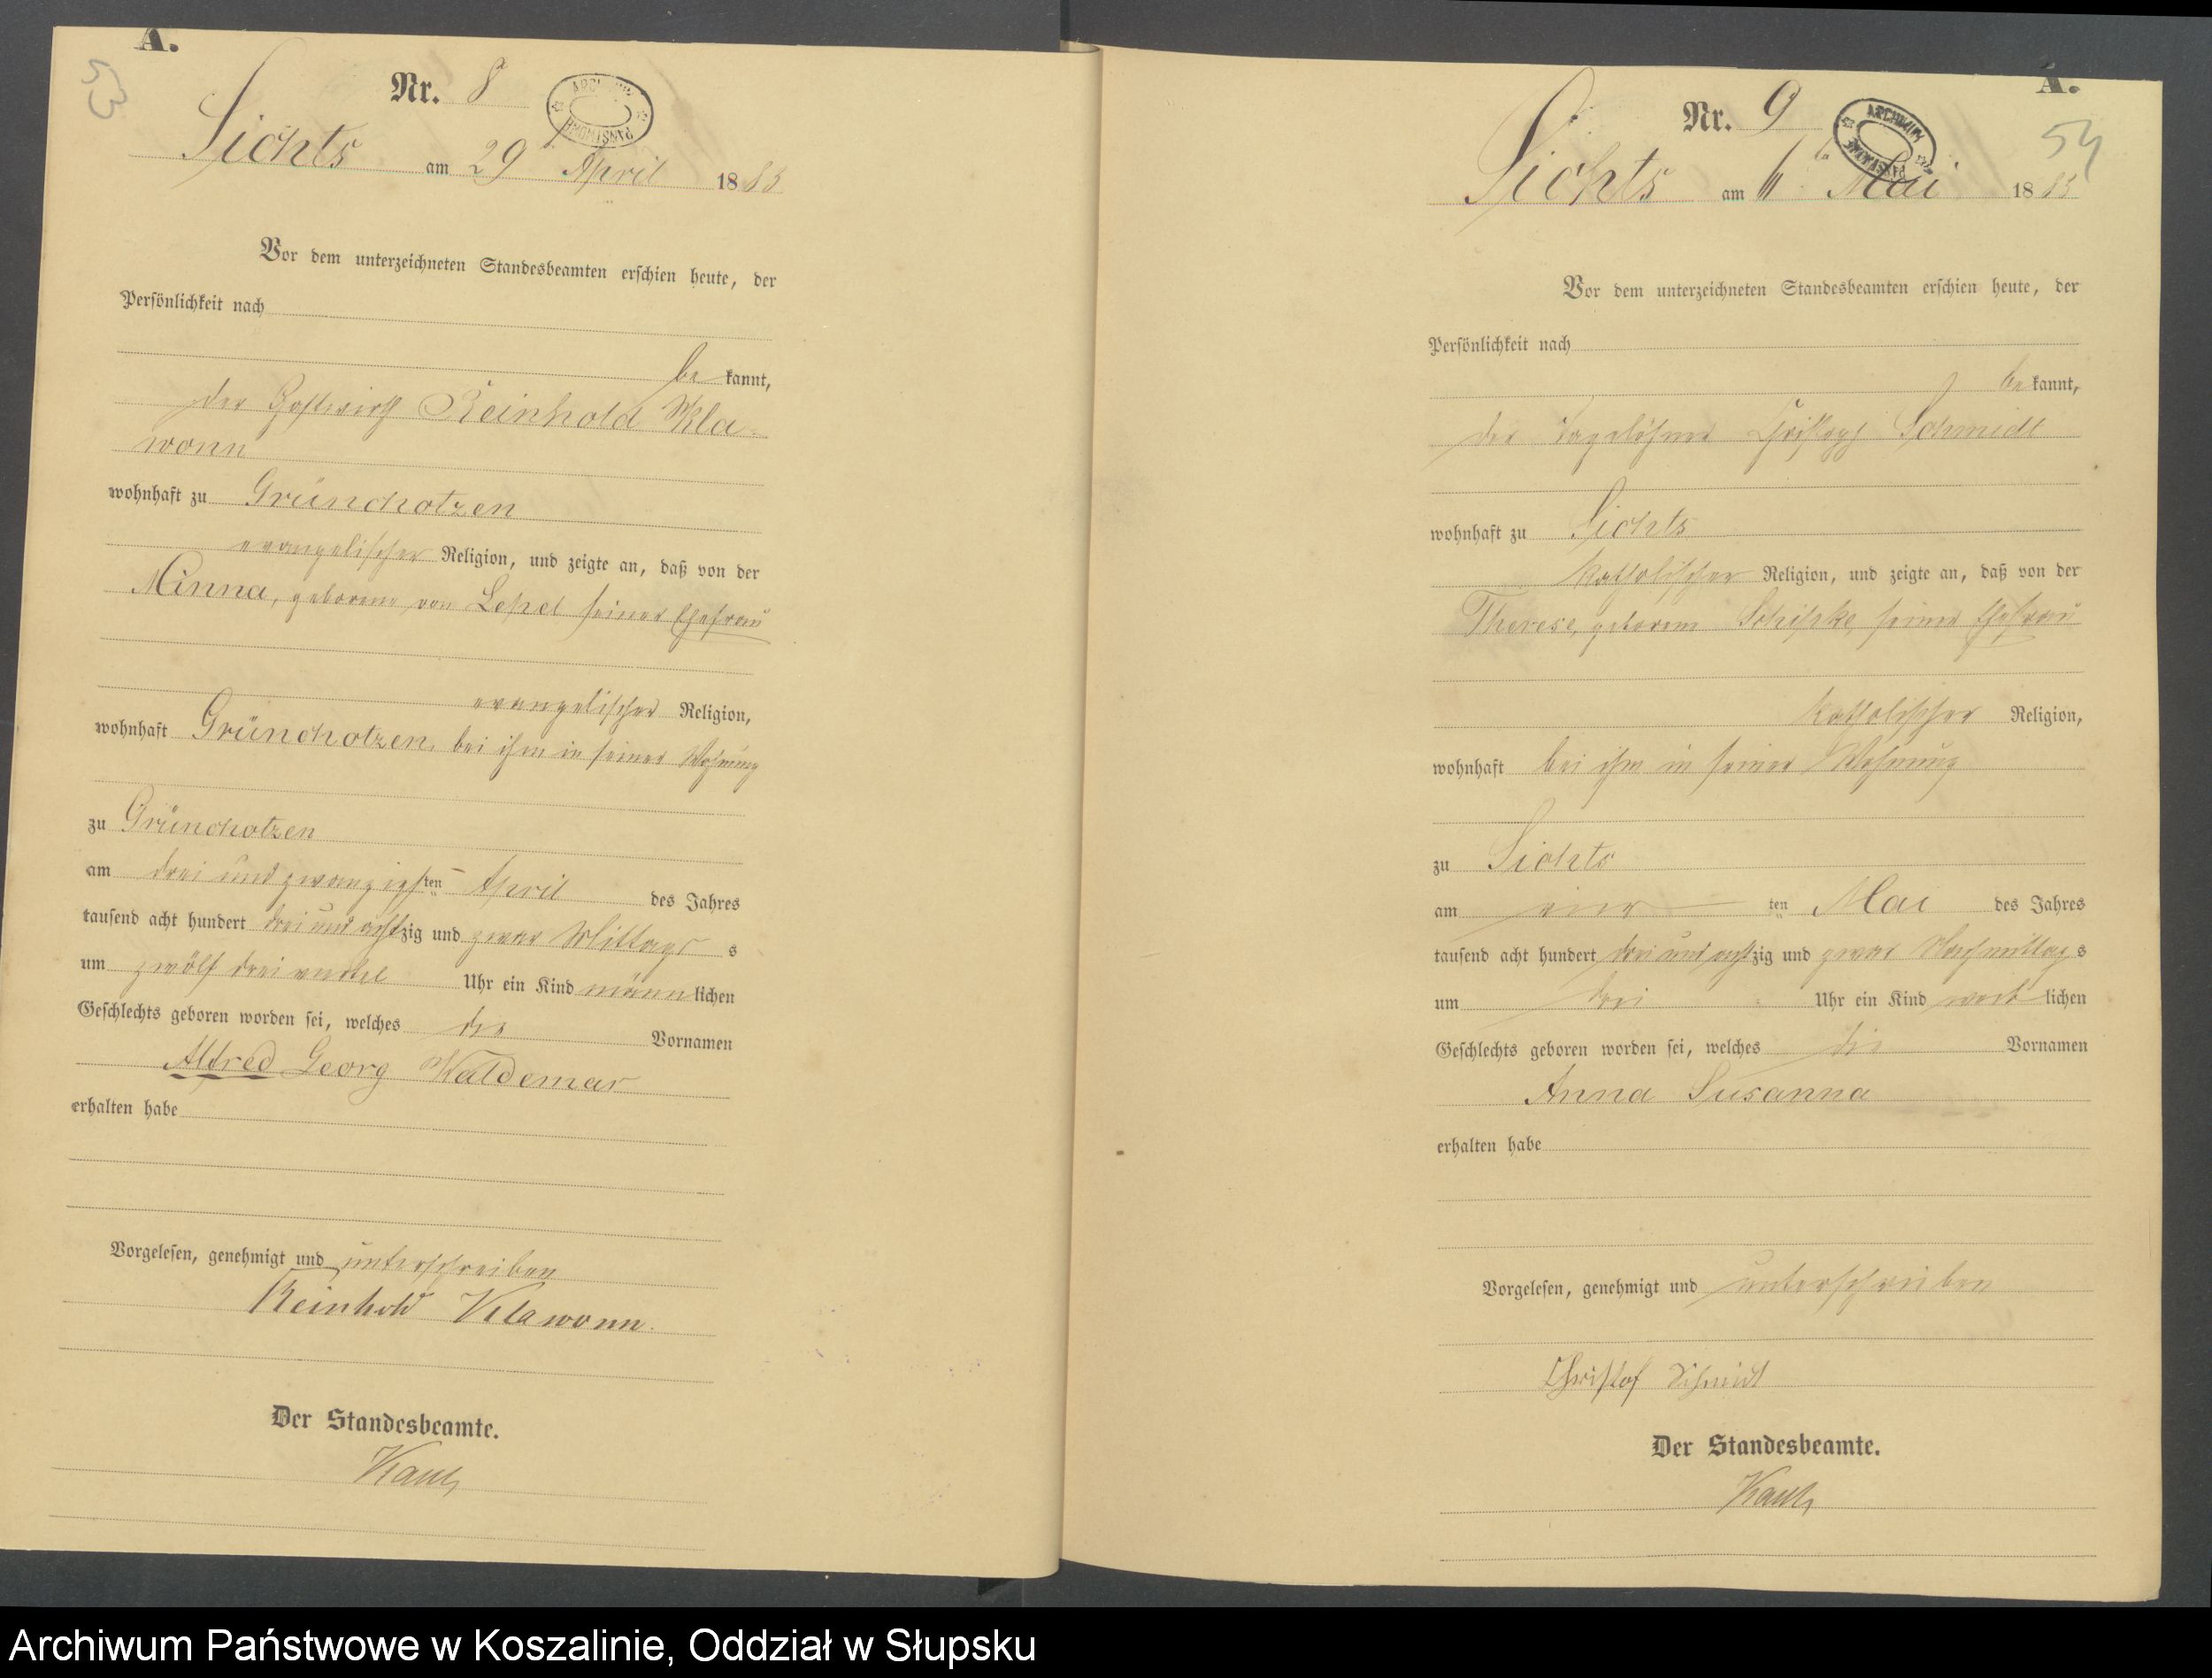 A.
53
Nr. 8
Sichts am 29 April 1883
Vor dem unterzeichneten Standesbeamten erschien heute, der
Persönlichkeit nach
be kannt,
der Gastwirth Reinhold Kla-
wonn
wohnhaft zu Grünchotzen
evangelischer Religion, und zeigte an, daß von der
Minna, geborene von Lepel seiner Ehefrau
evangelischer Religion,
wohnhaft Grünchotzen, bei ihm in seiner Wohnung
zu Grünchotzen
am drei und zwanzigsten April des Jahres
tausend acht hundert drei und achtzig und zwar Mittags s
um zwölf drei viertel Uhr ein Kind männlichen
Geschlechts geboren worden sei, welches die Vornamen
Alfred Georg Waldemar
erhalten habe
Vorgelesen, genehmigt und unterschrieben
Reinhold Klawonn.
Der Standesbeamte.
A.
54
Nr. 9
ARCHIWUM
Sichts am Mai 1883
Vor dem unterzeichneten Standesbeamten erschien heute, der
Persönlichkeit nach
be kannt,
der Tagelöhner Christoph Schmidt
wohnhaft zu Sichts
katholischer Religion, und zeigte an, daß von der
Therese, geborene seiner Ehefrau
katholischer Religion,
wohnhaft bei ihm in seiner Wohnung
zu Sichts
am ten Mai des Jahres
tausend acht hundert drei und achtzig und zwar Nachmittag s
um drei Uhr ein Kind weib lichen
Geschlechts geboren worden sei, welches die Vornamen
Anna Susanna
erhalten habe
Vorgelesen, genehmigt und unterschrieben
Christof Schmidt
Der Standesbeamte.
Archiwum Państwowe w Koszalinie, Oddział w Słupsku